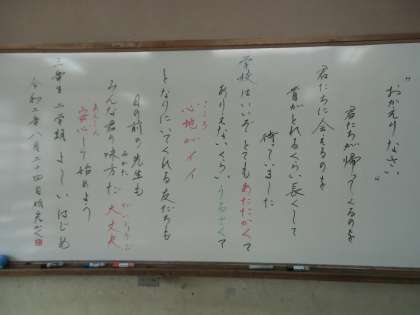 "おかえりなさい"
君たちが帰ってくるのを
君たちに会えるのを
首がとれるくらい長くして
待っていました
学校はいいぞ とてもあたたかくて
ありえないくらい うるさくて
心地がイイ
ここち
となりにいてくれる友だちも
目の前の先生も
みんな君の味方だ 大丈夫
みかた だいじょうぶ
安心して始めよう
あんしん
二年生 二学期 よーい はじめ
令和二年八月二十四日